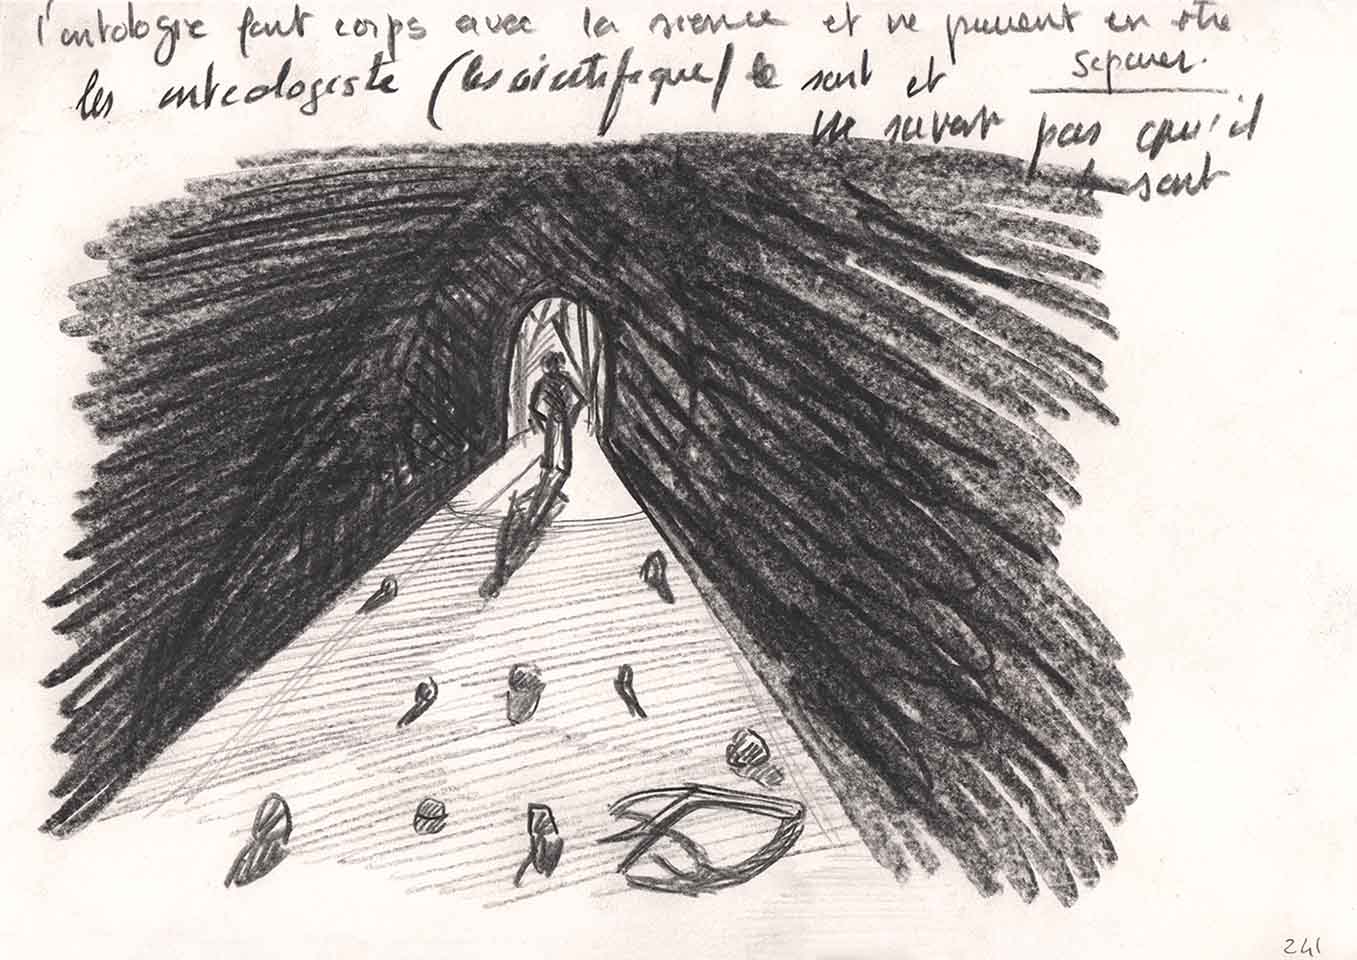 l'ontologie font corps avec la science et ne peuvent en être
séparer.
les onteologiste (les scientifique) le sont et
ne savent pas qu'il
le sont
241